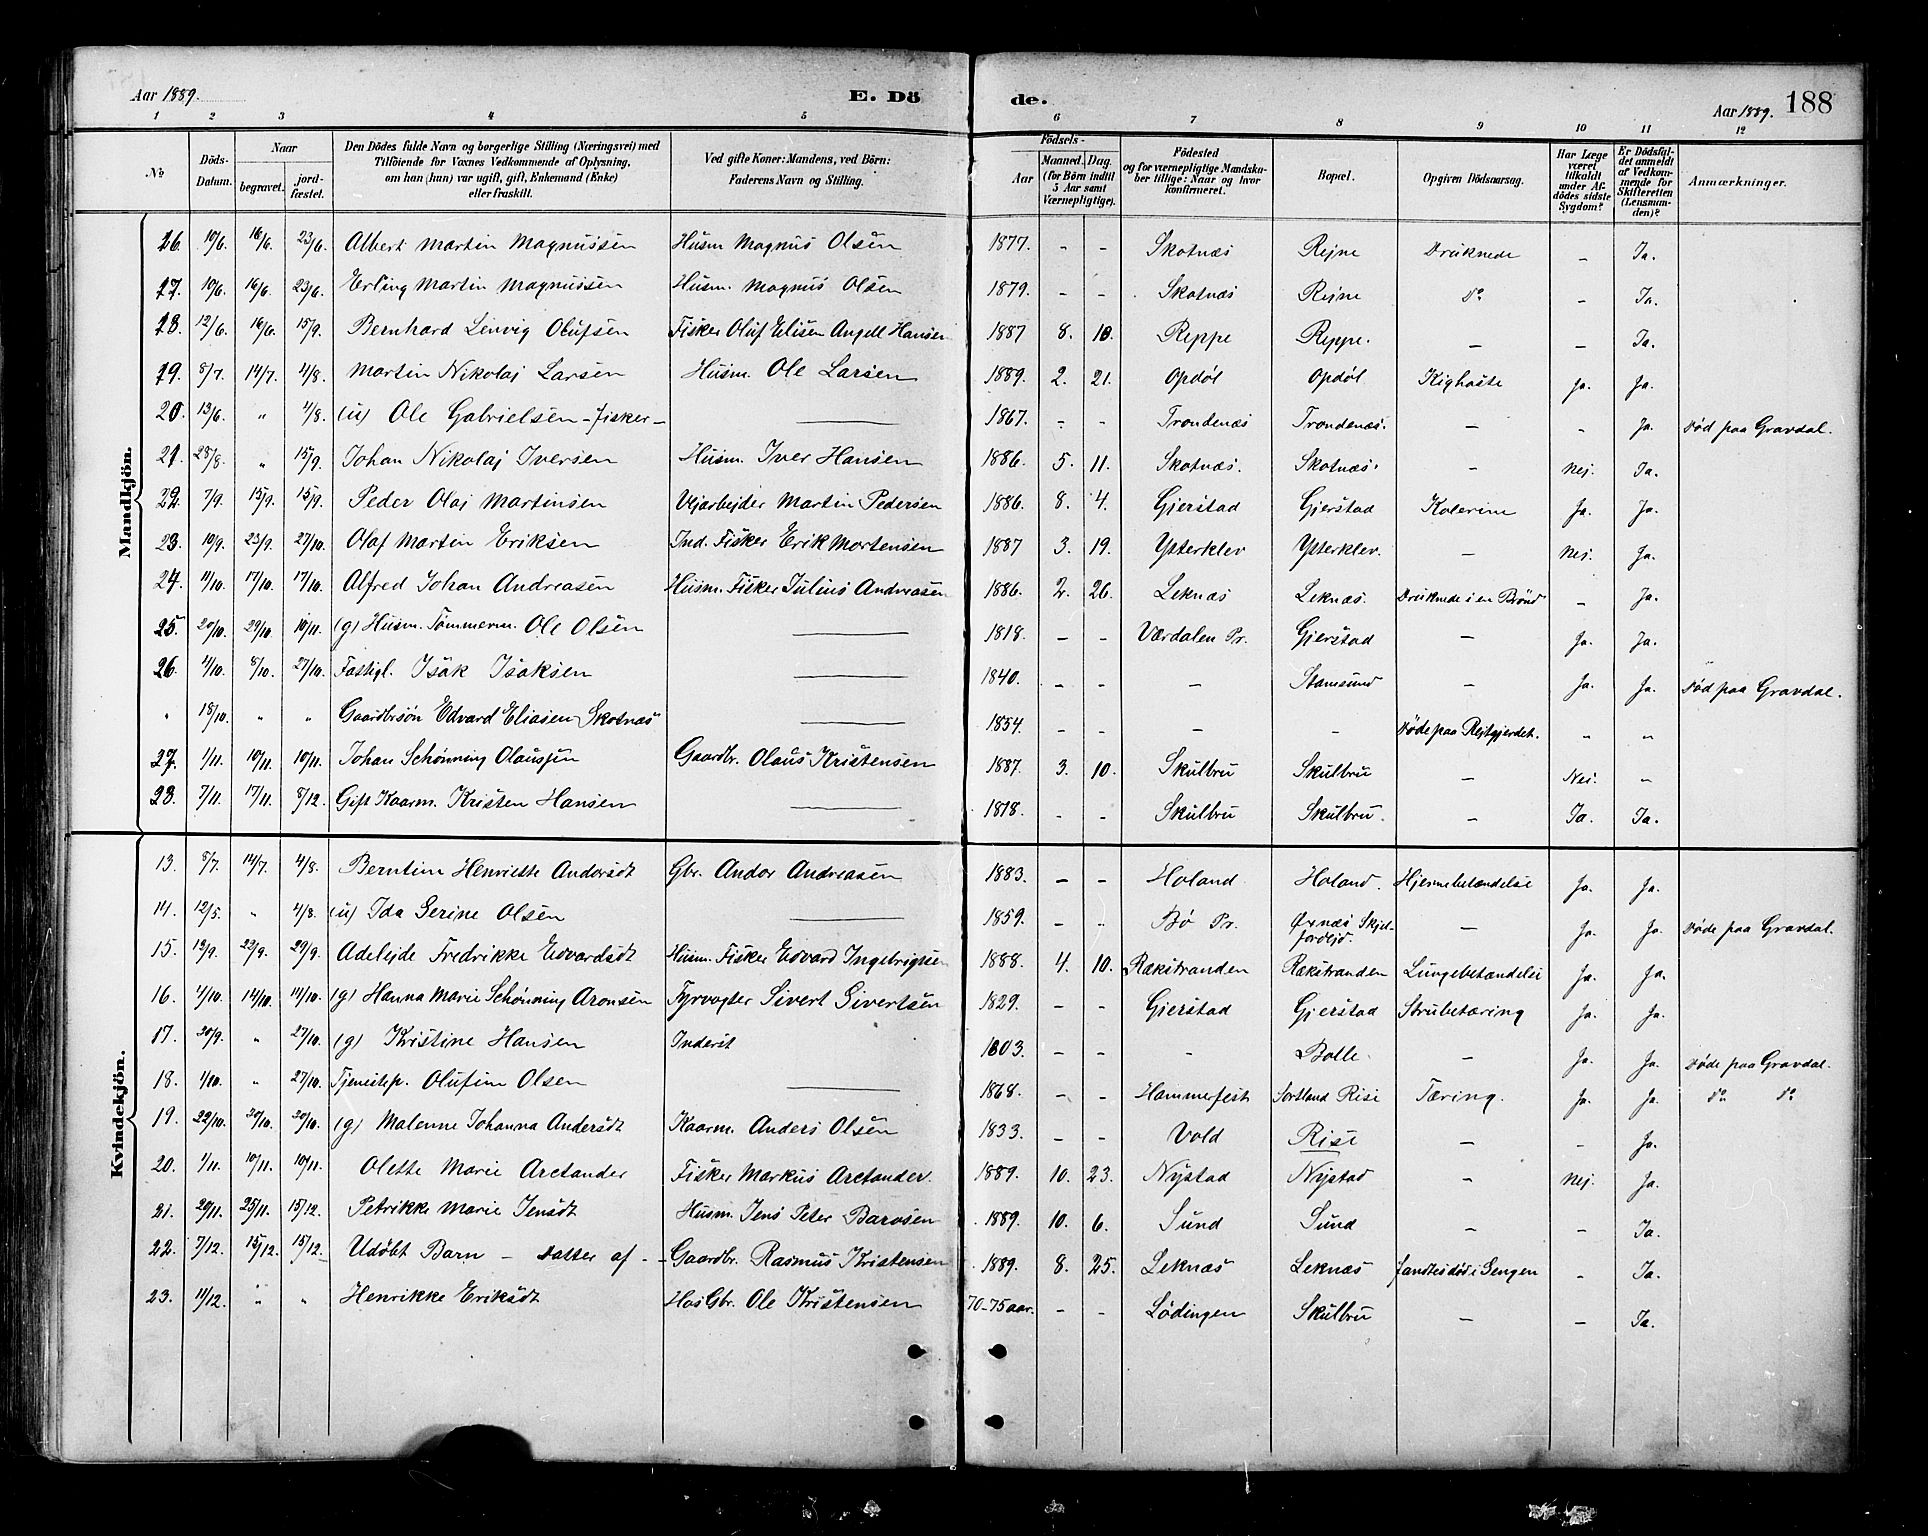 Aar 1889. E. Dö de. Aar 1889. 188
1 2 3 4 5 6 7 8 9 10 11 12
No Döds-Datum. Naar begravet. jordfæstet. Den Dödes fulde Navn og borgerlige Stilling (Næringsvei) med Tilföiende for Voxnes Vedkommende af Oplysning, om han (hun) var ugift, gift, Enkemand (Enke) eller fraskilt. Ved gifte Koner: Mandens, ved Börn: Faderens Navn og Stilling. Födsels- Aar Maaned. Dag. (for Börn indtil 5 Aar samt Værnepligtige). Födested og for værnepligtige Mandskaber tillige: Naar og hvor konfirmeret. Bopæl. Opgiven Dödsaarsag. Har Læge været tilkaldt under Afdödes sidste Sygdom? Er Dödsfaldet anmeldt af Vedkommende for Skifteretten (Lensmanden)? Anmærkninger.
Mandkjön.
16. 10/6. 16/6. 23/6. Albert Martin Magnussen Husm Magnus Olsen 1877. - - Skotnæs Rejne Druknede - Ja.
17. 10/6. 16/6. 23/6. Erling Martin Magnussen Husm. Magnus Olsen 1879. - - Skotnæs Rejne Do - Ja.
18. 12/6. 16/6. 15/9. Bernhard Lenvig Olufsen Fisker Oluf Elisen Angell Hansen 1887 8. 10. Reppe Reppe. - - Ja.
19. 8/7. 14/7. 4/8. Martin Nikolaj Larsen Husm. Ole Larsen 1889. 2. 21. Opdøl Opdøl Kighoste Ja. Ja.
20. 13/6. " 4/8. (u) Ole Gabrielsen - fisker - 1867. - - Trondenæs Trondenæs. - - Ja. Død paa Gravdal.
21. 28/8. " 15/9. Johan Nikolaj Iversen Husm. Iver Hansen 1886. 5. 11. Skotnæs. Skotnæs. - Nej. Ja.
22. 7/9. 15/9. 15/9. Peder Olaj Martinsen Vejarbejder Martin Pedersen 1886. 8. 4. Gjerstad Gjerstad Kolerine Ja. Ja.
23. 10/9. 23/9. 27/10. Olaf Martin Eriksen Ind. Fisker Erik Mortensen 1887 3. 19. Ysterklev Ysterklev. - Nej. Ja.
24. 11/10. 17/10. 17/10. Alfred Johan Andreasen Husm. Fisker Julius Andreasen 1886. 2. 26. Leknæs Leknæs. Druknede i en Brønd - Ja.
25. 20/10. 29/10. 10/11. (g) Husm. Tømmerm. Ole Olsen 1818. - - Værdalen Pr. Gjerstad - Ja. Ja.
26. 4/10. 8/10. 27/10. Fattigl. Isak Isaksen 1840. - - - Stamsund - Ja. Ja. Død paa Gravdal.
" 18/10. " " Gaardbrsøn Edvard Eliasen Skotnæs 1854. - - Døde paa Rejtgjerdet. " "
27. 1/11. 10/11. 10/11. Johan Schønning Olaussen Gaardbr. Olaus Kristensen 1887. 3. 10. Skulbru Skulbru - Nei. -
28. 7/11. 17/11. 8/12. Gift Kaarm. Kristen Hansen 1818. - - Skulbru Skulbru. - Ja. Ja.
Kvindekjön.
13. 8/7. 14/7. 4/8. Berntine Henriette Andorsdt Gbr. Andor Andreasen 1883. - - Holand. Holand. Hjernebetændelse Ja. Ja.
14. 12/5. " 4/8. (u) Ida Serine Olsen 1859. - " Bø Pr. Ørnæs Skjelfordejd. - Ja. Ja. Døde paa Gravdal.
15. 12/9. 22/9. 29/9. Adelejde Fredrikke Edvardsdt Husm. Fisker Edvard Ingebrigtsen 1888. 4. 10. Rækstranden Rækstranden Lungebetændelse Ja. Ja.
16. 4/10. 14/10. 14/10. (g) Hanna Marie Schønning Aronsen Fyrvogter Sivert Sivertsen 1829. - - Gjerstad Gjerstad Strubetæring Ja. Ja.
17. 20/9. " 27/10. (g) Kristine Hansen Inderst 1803. - - - Bolle. - Ja. Ja. Døde paa Gravdal.
18. 4/10. " 27/10. Tjenestep. Olufine Olsen 1868. - - Hammerfest Sortland Risø Tæring. Ja. Ja. Do Do
19. 22/10. 30/10. 30/10. (g) Malenne Johanna Andersdt Kaarm. Anders Olsen 1833. - - Vold Rise - - Ja.
20. 1/11. 10/11. 10/11. Olette Marie Arctander Fisker Markus Arctander. 1889. 10. 23. Nystad Nystad - Nej. Ja.
21. 20/11. 25/11. 15/12. Petrikke Marie Jensdt Husm. Jens Peter Barosen 1889. 10. 6. Sund Sund - - Ja.
22. 7/12. 15/12. 15/12. Udøbt Barn - Datter af - - Gaardbr. Rasmus Kristensen 1889. 8. 25. Leknæs Leknæs fandtes død i Sengen - Ja.
23. 11/12. " " Henrikke Eriksdt Hos Gbr. Ole Kristensen 70-75 aar. - - Lødingen Skulbru - - Ja.